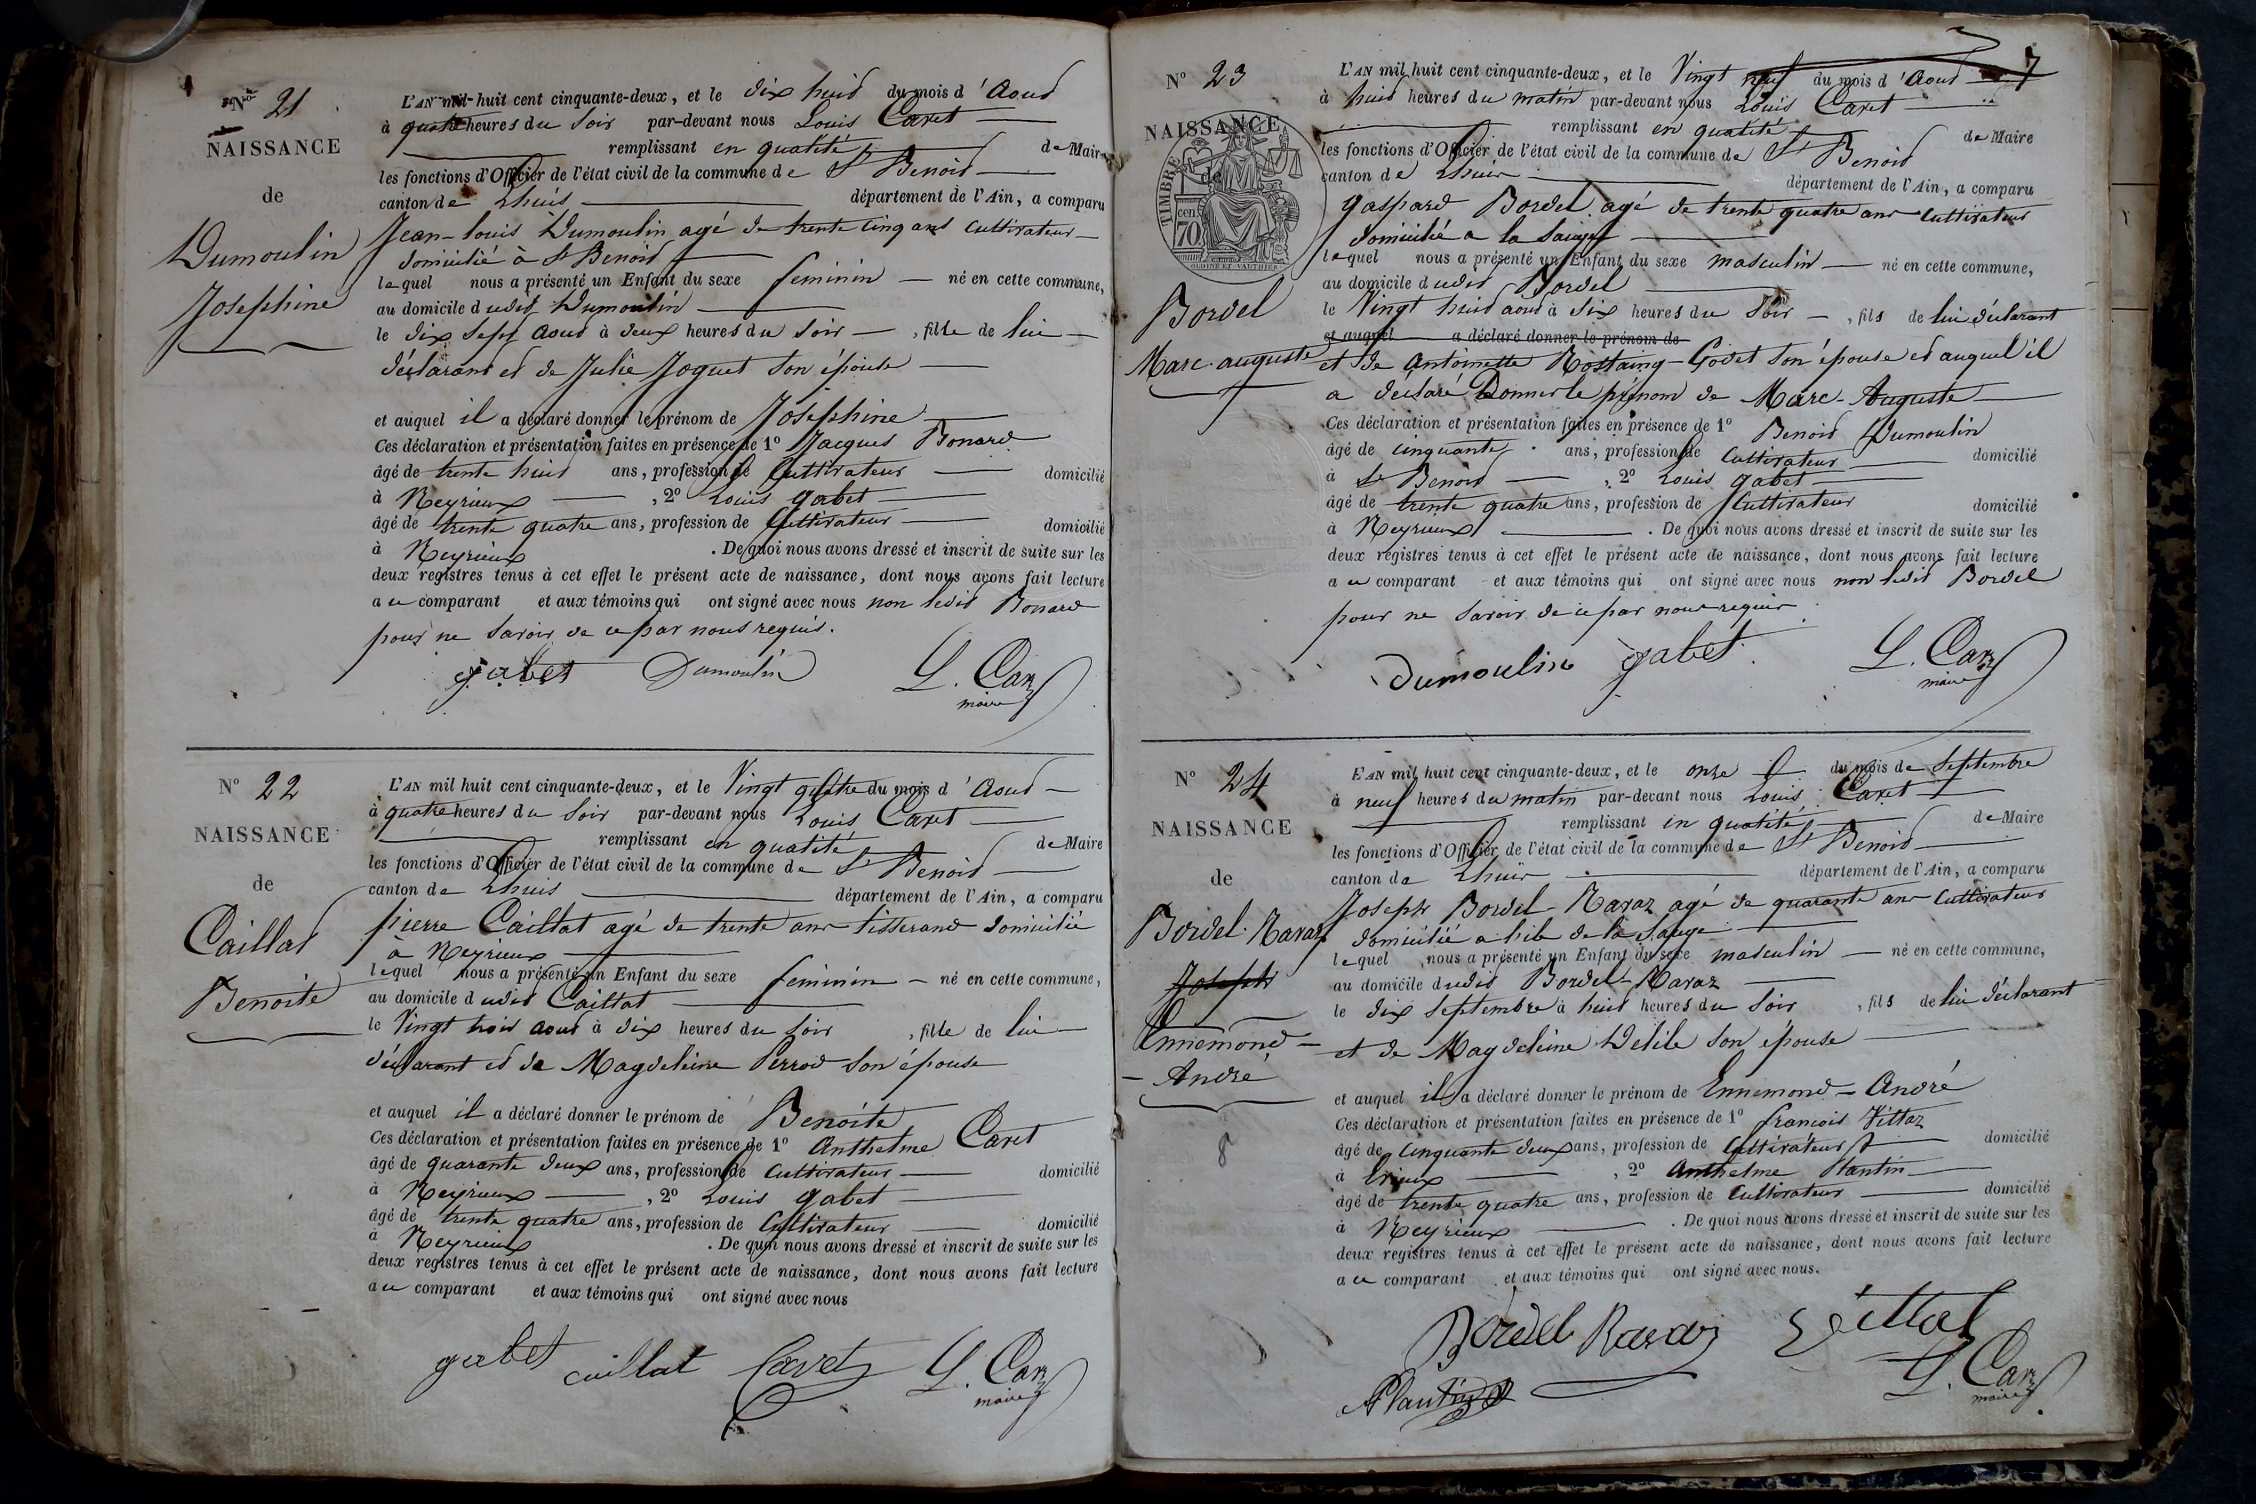 Nº 21
NAISSANCE
de
Dumoulin
Josephine
L'AN mil huit cent cinquante-deux, et le dix huit du mois d'Aout
à quatre heures du soir par-devant nous Louis Caret
remplissant en qualité de Maire
les fonctions d'Officier de l'état civil de la commune de St Benoit
canton de Lhuis département de l'Ain, a comparu
Jean-louis Dumoulin agé de trente cinq ans cultivateur
domicilié à St Benoit
lequel nous a présenté un Enfant du sexe feminin né en cette commune,
au domicile dudit Dumoulin
le dix sept aout à deux heures du soir, fille de lui
déclarant et de Julie Joguet son épouse
et auquel il a déclaré donner le prénom de Josephine
Ces déclaration et présentation faites en présence de 1º Jacques Bonard
âgé de trente huit ans, profession de Cultivateur domicilié
à Neyrieux, 2º Louis gabet
âgé de trente quatre ans, profession de Cultivateur domicilié
à Neyrieux. De quoi nous avons dressé et inscrit de suite sur les
deux registres tenus à cet effet le présent acte de naissance, dont nous avons fait lecture
au comparant et aux témoins qui ont signé avec nous non ledit Bonard
pour ne savoir de ce par nous requis.
gabet Dumoulin L. Caret
maire
Nº 22
NAISSANCE
de
Caillat
Benoite
L'AN mil huit cent cinquante-deux, et le Vingt quatre du mois d'Aout
à quatre heures du soir par-devant nous Louis Caret
remplissant en qualité de Maire
les fonctions d'Officier de l'état civil de la commune de St Benoit
canton de Lhuis département de l'Ain, a comparu
pierre Caillat agé de trente ans tisserand domicilié
à Neyrieux
lequel nous a présenté un Enfant du sexe feminin né en cette commune,
au domicile dudit Caillat
le Vingt trois aout à dix heures du soir, fille de lui
déclarant et de Magdeleine Perrod son épouse
et auquel il a déclaré donner le prénom de Benoite
Ces déclaration et présentation faites en présence de 1º Anthelme Caret
âgé de quarante deux ans, profession de Cultivateur domicilié
à Neyrieux, 2º Louis gabet
âgé de trente quatre ans, profession de Cultivateur domicilié
à Neyrieux. De quoi nous avons dressé et inscrit de suite sur les
deux registres tenus à cet effet le présent acte de naissance, dont nous avons fait lecture
au comparant et aux témoins qui ont signé avec nous
gabet caillat Caret L. Caret
maire
7
Nº 23
NAISSANCE
de
TIMBRE
70 cen
Bordel
Marc-auguste
L'AN mil huit cent cinquante-deux, et le Vingt neuf du mois d'Aout
à huit heures du matin par-devant nous Louis Caret
remplissant en qualité de Maire
les fonctions d'Officier de l'état civil de la commune de St Benoit
canton de Lhuis département de l'Ain, a comparu
gaspard Bordel agé de trente quatre ans cultivateur
domicilié a la Sauge
lequel nous a présenté un Enfant du sexe masculin né en cette commune,
au domicile dudit Bordel
le Vingt huit aout à dix heures du soir, fils de lui déclarant
et auquel a déclaré donner le prénom de
et de Antoinette Rostaing-Godet son épouse et auquel il
a déclaré Donner le prénom de Marc-Auguste
Ces déclaration et présentation faites en présence de 1º Benoit Dumoulin
âgé de cinquante ans, profession de Cultivateur domicilié
à St Benoit, 2º Louis gabet
âgé de trente quatre ans, profession de Cultivateur domicilié
à Neyrieux. De quoi nous avons dressé et inscrit de suite sur les
deux registres tenus à cet effet le présent acte de naissance, dont nous avons fait lecture
au comparant et aux témoins qui ont signé avec nous non ledit Bordel
pour ne savoir de ce par nous requis
Dumoulin gabet L. Caret
maire
Nº 24
NAISSANCE
de
Bordel-Ravaz
Joseph
Ennemond-
André
8
L'AN mil huit cent cinquante-deux, et le onze du mois de Septembre
à neuf heures du matin par-devant nous Louis Caret
remplissant en qualité de Maire
les fonctions d'Officier de l'état civil de la commune de St Benoit
canton de Lhuis département de l'Ain, a comparu
Joseph Bordel-Ravaz agé de quarante ans Cultivateur
domicilié a de la Sauge
lequel nous a présenté un Enfant du sexe masculin né en cette commune,
au domicile dudit Bordel-Ravaz
le dix septembre à huit heures du soir, fils de lui déclarant
et de Magdeleine Delile son épouse
et auquel il a déclaré donner le prénom de Ennemond-André
Ces déclaration et présentation faites en présence de 1º francois Vittaz
âgé de cinquante deux ans, profession de Cultivateur domicilié
à, 2º Anthelme Plantin
âgé de trente quatre ans, profession de Cultivateur domicilié
à Neyrieux. De quoi nous avons dressé et inscrit de suite sur les
deux registres tenus à cet effet le présent acte de naissance, dont nous avons fait lecture
au comparant et aux témoins qui ont signé avec nous.
Bordel Ravaz Vittaz
APlantin L. Caret
maire